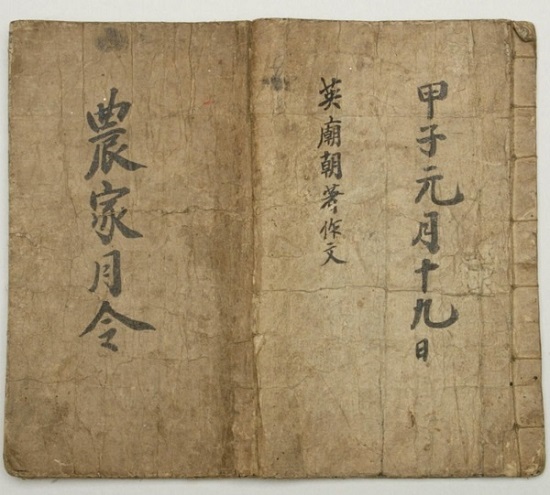 甲子元月十九日
英廟朝著作文
農家月令